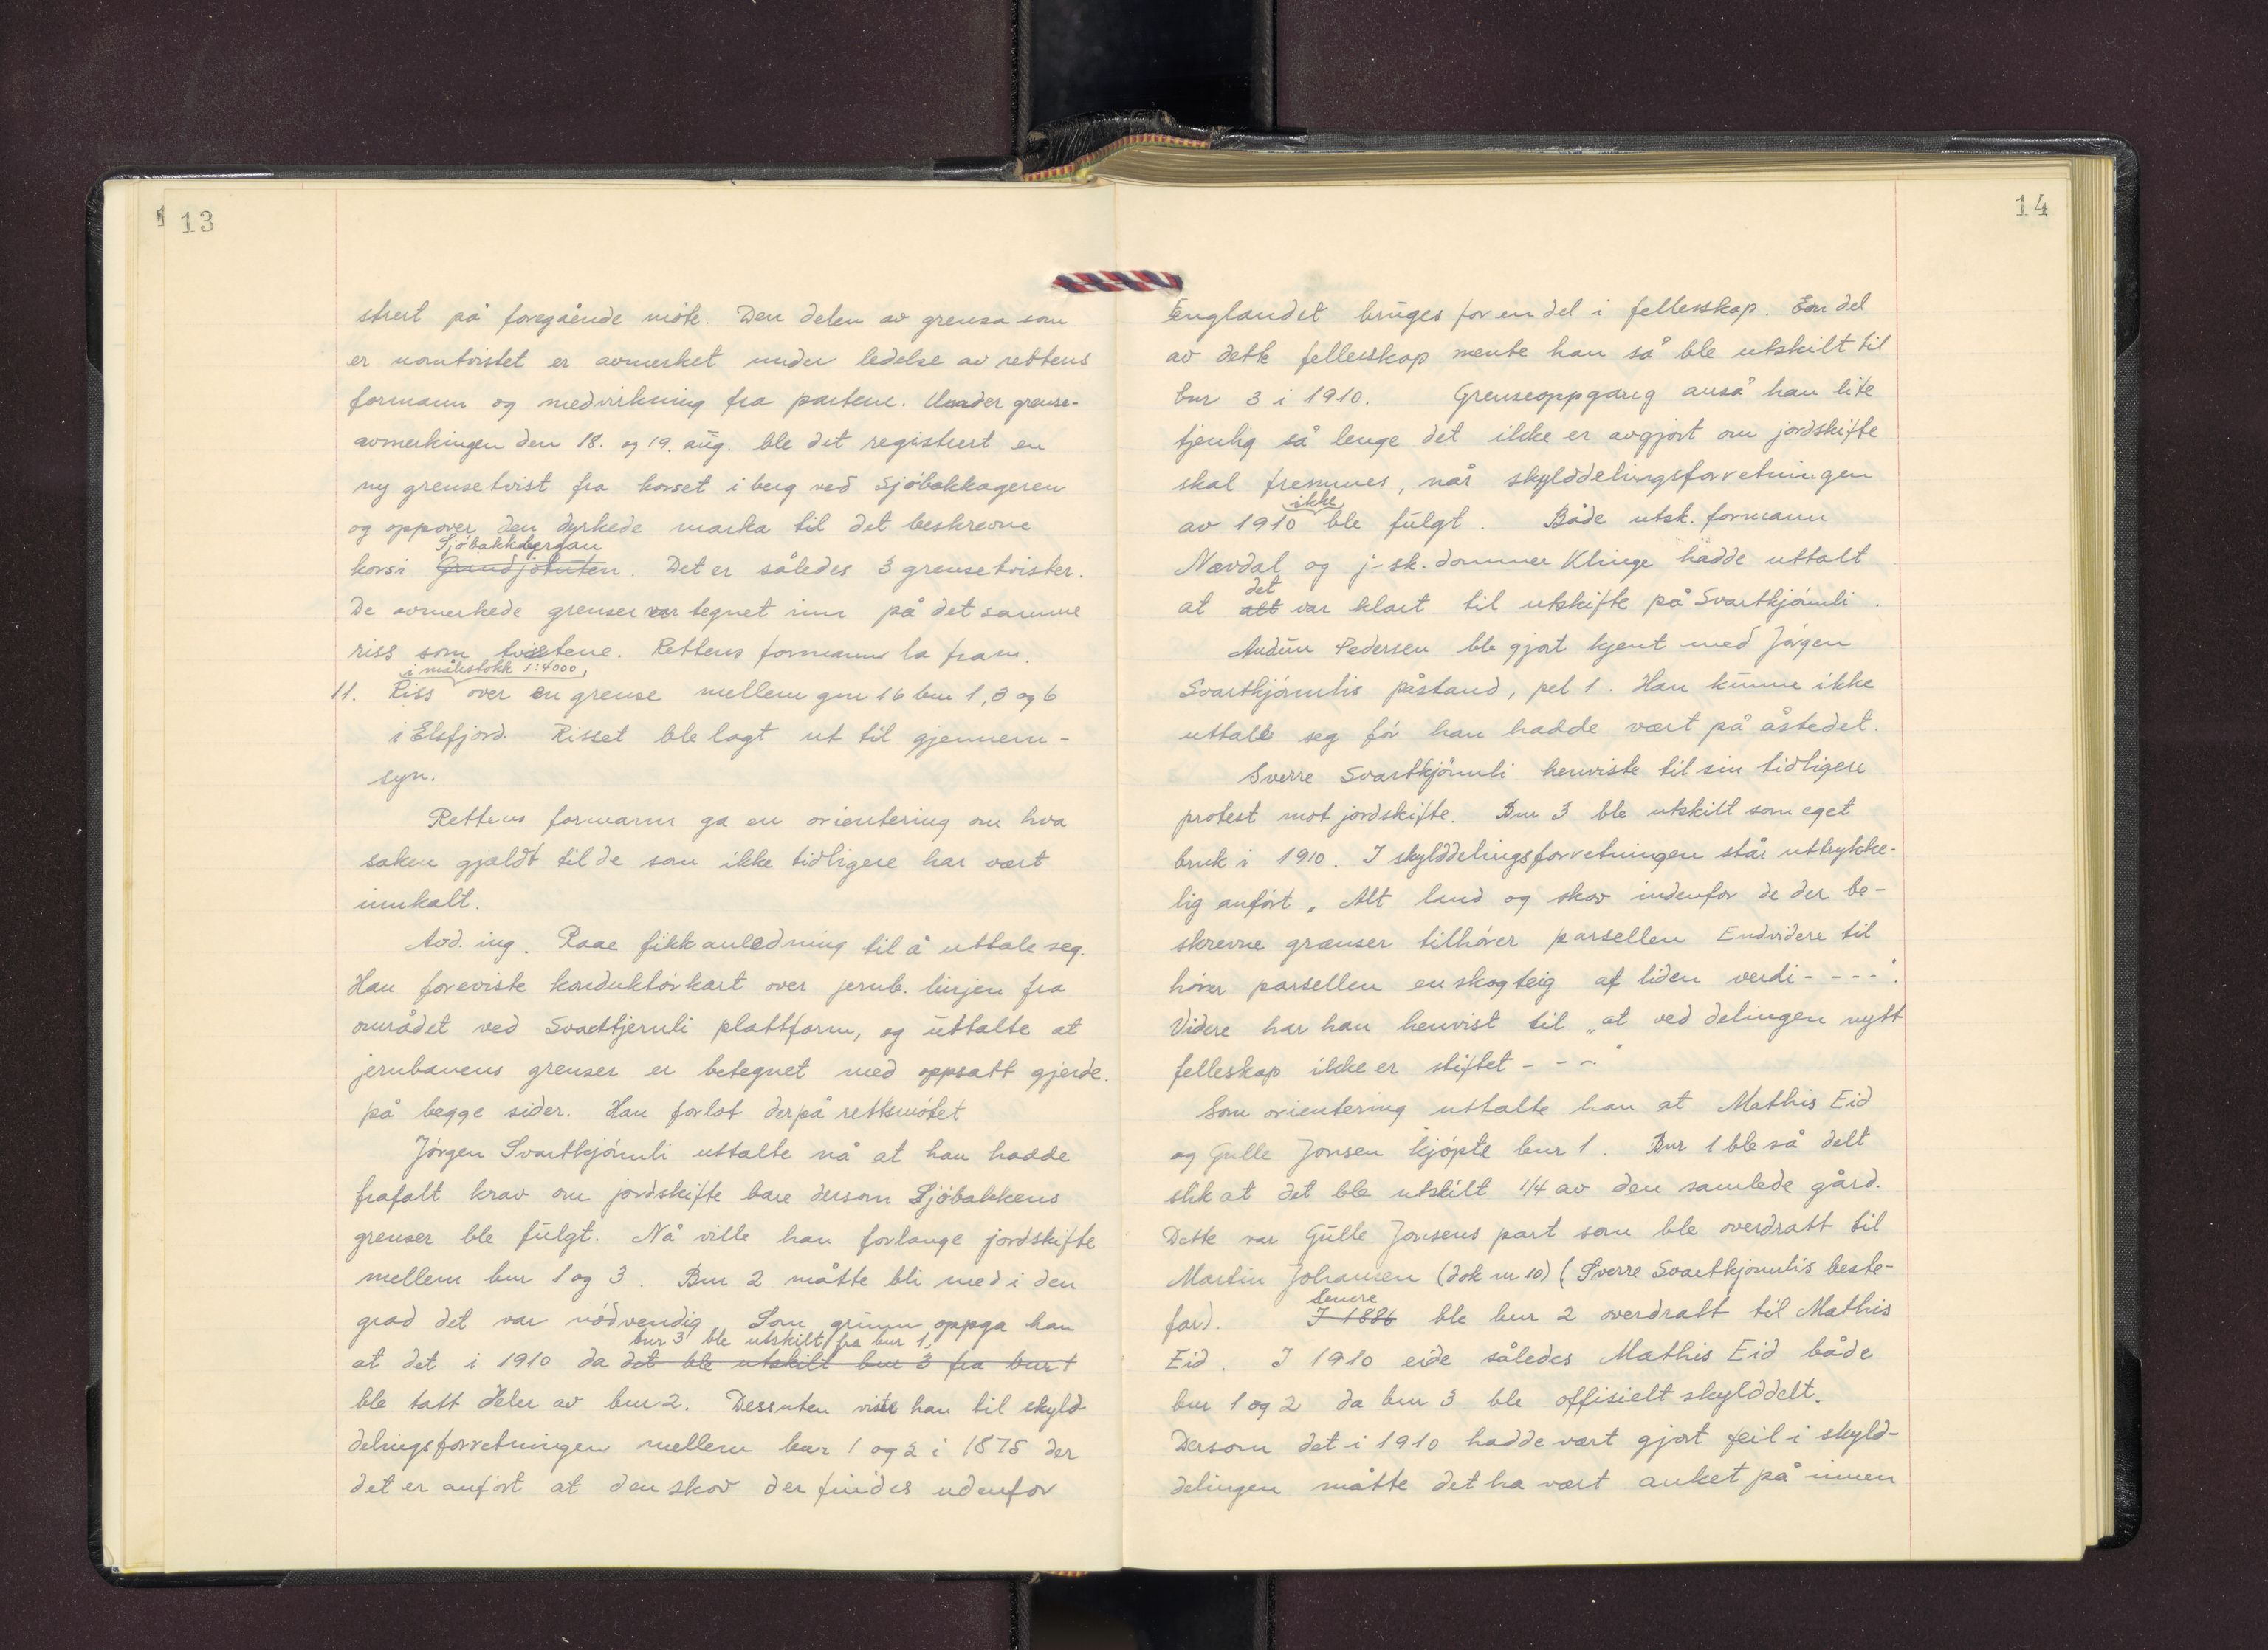 13
strert på foregående möte. Den delen av grensa som
er uomtvistet er avmerket under ledelse av rettens
formann og medvirkning fra partene. Under grense-
avmerkingen den 18. og 19. aug. ble det registrert en
ny grensetvist fra korset i berg ved Sjöbakkageren
og oppover den dyrkede marka til det beskrevne
Sjöbakkbergan
kors i Grundjötuten. Det er således 3 grensetvister.
De avmerkede grenser var tegnet inn på det samme
riss som tvistene. Rettens formann la fram.
i målestokk 1:4000,
11. Riss over en grense mellem gnr 16 bnr 1, 3 og 6
i Elsfjord. Risset ble lagt ut til gjennem-
syn.
Rettens formann ga en orientering om hva
saken gjaldt til de som ikke tidligere har vært
innkalt.
Avd. ing. Raae fikk anledning til å uttale seg.
Han foreviste konduktörkart over jernb. linjen fra
området ved Svarttjernli plattform, og uttalte at
jernbanens grenser er betegnet med oppsatt gjerde.
på begge sider. Han forlot derpå rettsmötet
Jörgen Svartkjönnli uttalte nå at han hadde
frafalt krav om jordskifte bare dersom Sjöbakkens
grenser ble fulgt. Nå ville han forlange jordskifte
mellem bnr 1 og 3. Bnr 2 måtte bli med i den
grad det var nödvendig Som grunn oppga han
bnr 3 ble utskilt fra bnr 1,
at det i 1910 da det ble utskilt bnr 3 fra bnr 1
ble tatt deler av bnr 2. Dessuten viste han til skyld
delingsforretningen mellem bnr 1 og 2 i 1875 der
det er anfört at den skov der findes udenfor
14
Englandet bruges for en del i fellesskap. En del
av dette fellesskap mente han så ble utskilt til
bnr 3 i 1910. Grenseoppgang anså han lite
tjenlig så lenge det ikke er avgjort om jordskifte
skal fremmes, når skylddelingsforretningen
ikke
av 1910 ble fulgt. Både utsk. formann
Nævdal og j-sk. dommer Klinge hadde uttalt
det
at alt var klart til utskifte på Svartkjönnli.
Audun Pedersen ble gjort kjent med Jörgen
Svartkjönnlis påstand, pel 1. Han kunne ikke
uttale seg för han hadde vært på åstedet.
Sverre Svartkjönnli henviste til sin tidligere
protest mot jordskifte. Bnr 3 ble utskilt som eget
bruk i 1910. I skylddelingsforretningen står uttrykke-
lig anfört „ Alt land og skov indenfor de der be-
skrevne grænser tilhörer parsellen Endvidere til
hörer parsellen en skogteig af liden verdi - - - -".
Videre har han henvist til „at ved delingen nytt
felleskap ikke er stiftet - - -"
Som orientering uttalte han at Mathis Eid
og Gulle Jonsen kjöpte bnr 1. Bnr 1 ble så delt
slik at det ble utskilt 1/4 av den samlede gård.
Dette var Gulle Jonsens part som ble overdratt til
Martin Johansen (dok nr 10) (Sverre Svartkjönnlis beste-
Senere
far). I 1886 ble bnr 2 overdratt til Mathis
Eid. I 1910 eide således Mathis Eid både
bnr 1 og 2 da bnr 3 ble offisielt skylddelt.
Dersom det i 1910 hadde vært gjort feil i skyld-
delingen måtte det ha vært anket på innen